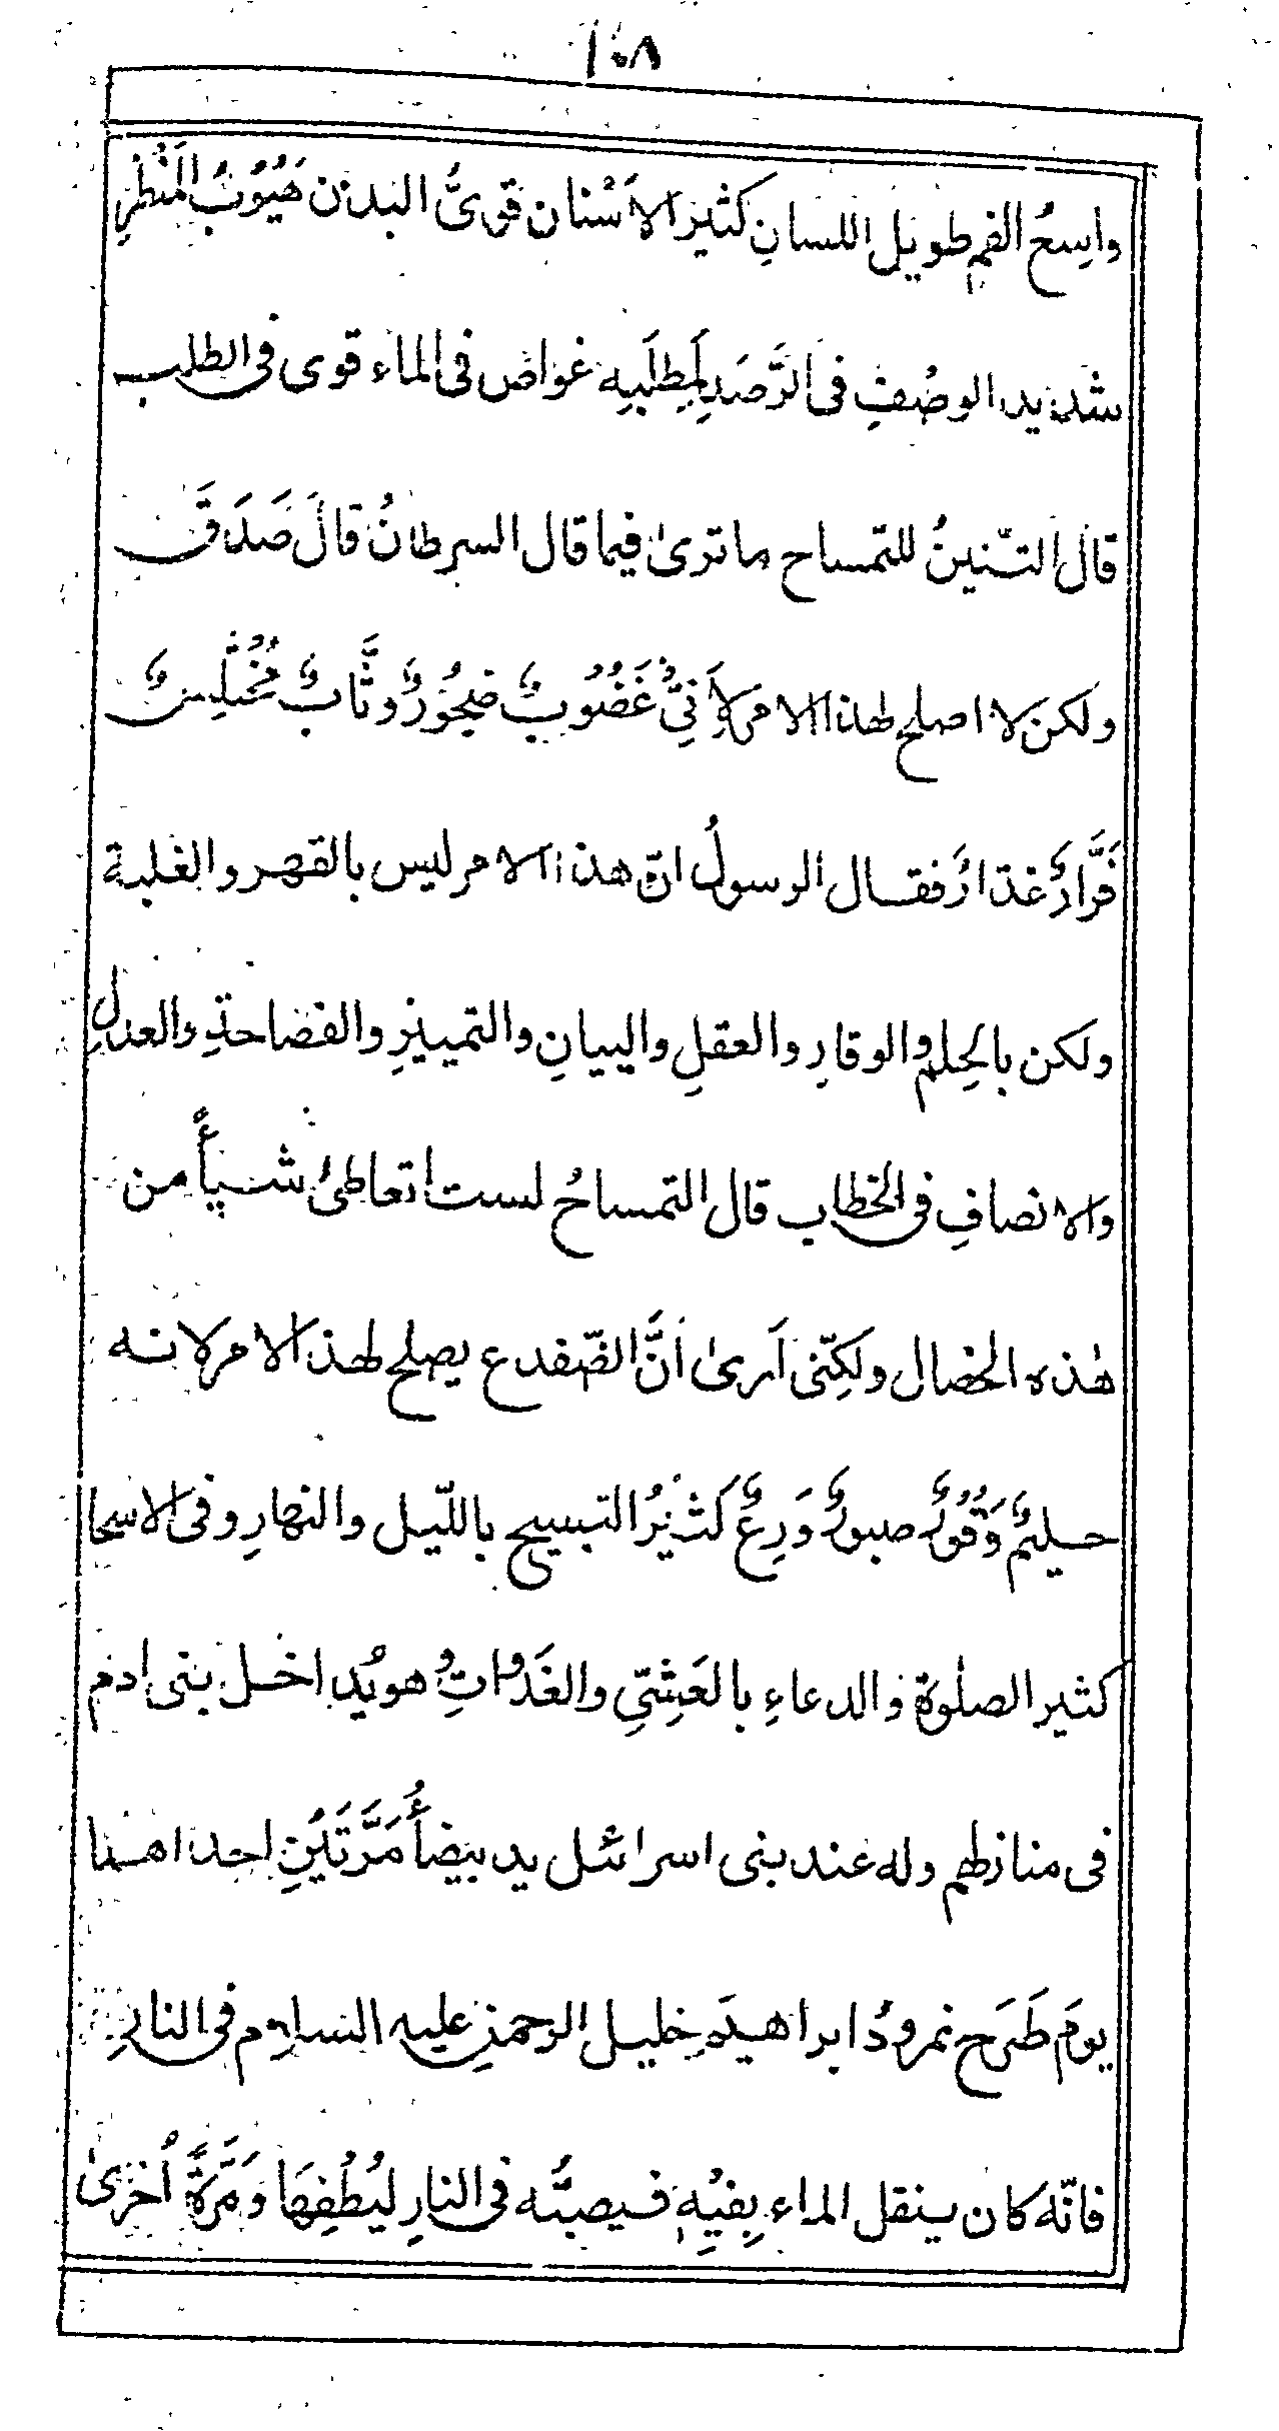 ١٠٨
واسِعُ الفمِ طويل اللسانِ كثيرُ الاَسْنان قوىُّ البدن مَيُوْبُ المَنْظَرِ
شديد الوصْفِ فى الرَّصَدِ لِمَطلَبِه غواص فى الماء قوى فى الطلب
قال التّنينُ للتمساح ما ترىٰ فيما قال السرطانُ قالَ صَدَقَ
ولكن لا اصلح لهذا الامر لِاَنِّىْ غَضُوْبٌ ضجُوْرٌ وثَّابٌ مُخْتَلِسٌ
فَرَّارٌ غدّارٌ فقال الرسولُ انّ هذا الامر ليس بالقهر والغلبة
ولكن بالحِلمِ والوقارِ والعقلِ والبيانِ والتمييزِ والفصاحةِ والعدلِ
والانصافِ فى الخطاب قال التمساحُ لست اتعاطىٰ شيأً من
هٰذه الخصال ولكِنّنى اَرىٰ اَنَّ الضّفدع يصلح لهذ الامر لانه
حليمٌ وَقُوْرٌ صبورٌ وَرِعٌ كثيْرُ التسبيح باللّيل والنهارِ وفى الاسحا
كثير الصلٰوة والدعاءِ بالعَشِىّ والغَدَواتِ وهو يُداخل بنى ادم
فى منازلهم وله عند بنى اسرائيل يد بيضأُ مَرَّتَيْنِ احداهما
يومَ طَرَح نمرودُ ابراهيم خليل الرحمن عليه السلام فى النارِ
فانّه كان ينقل الماء بِفيْهِ فيصبُّه فى النارِ ليُطْفِهَا وَمَرَّةً اُخْرىٰ